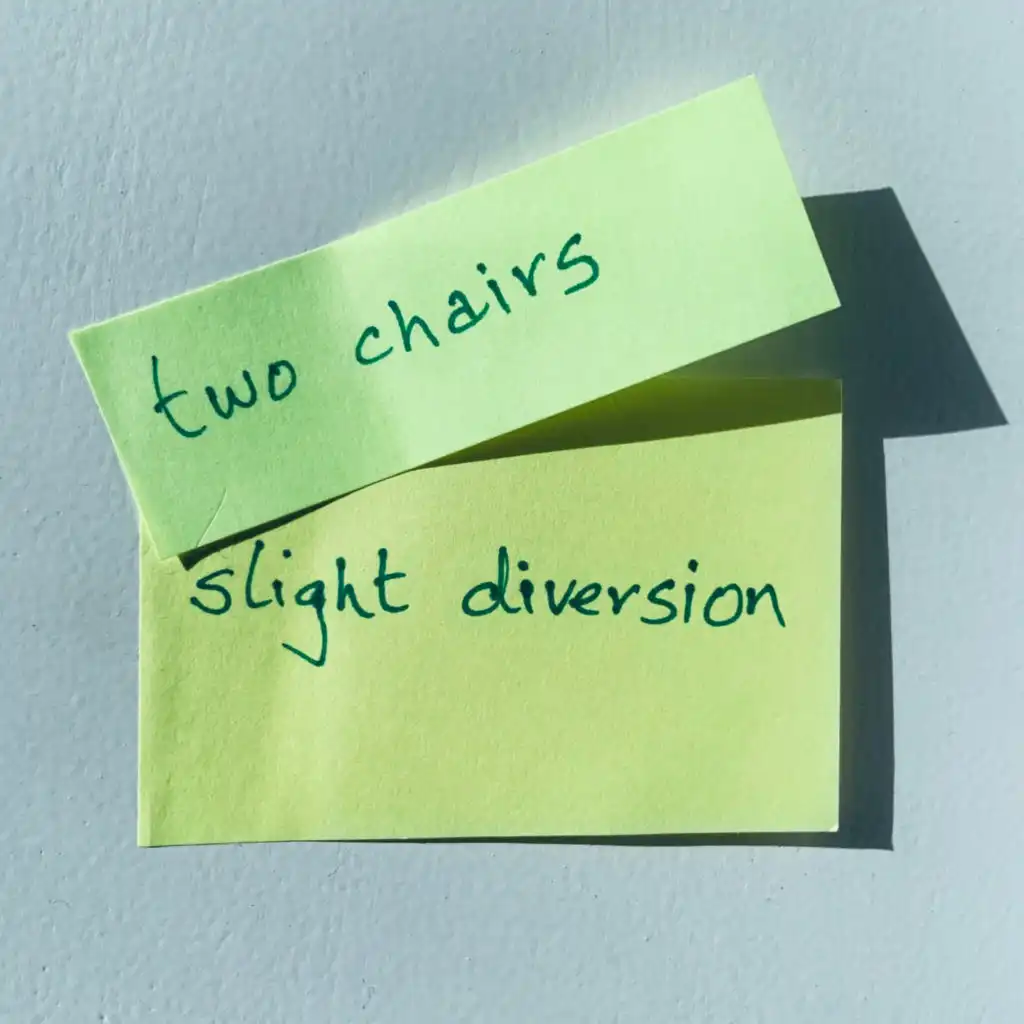 two chairs
slight diversion